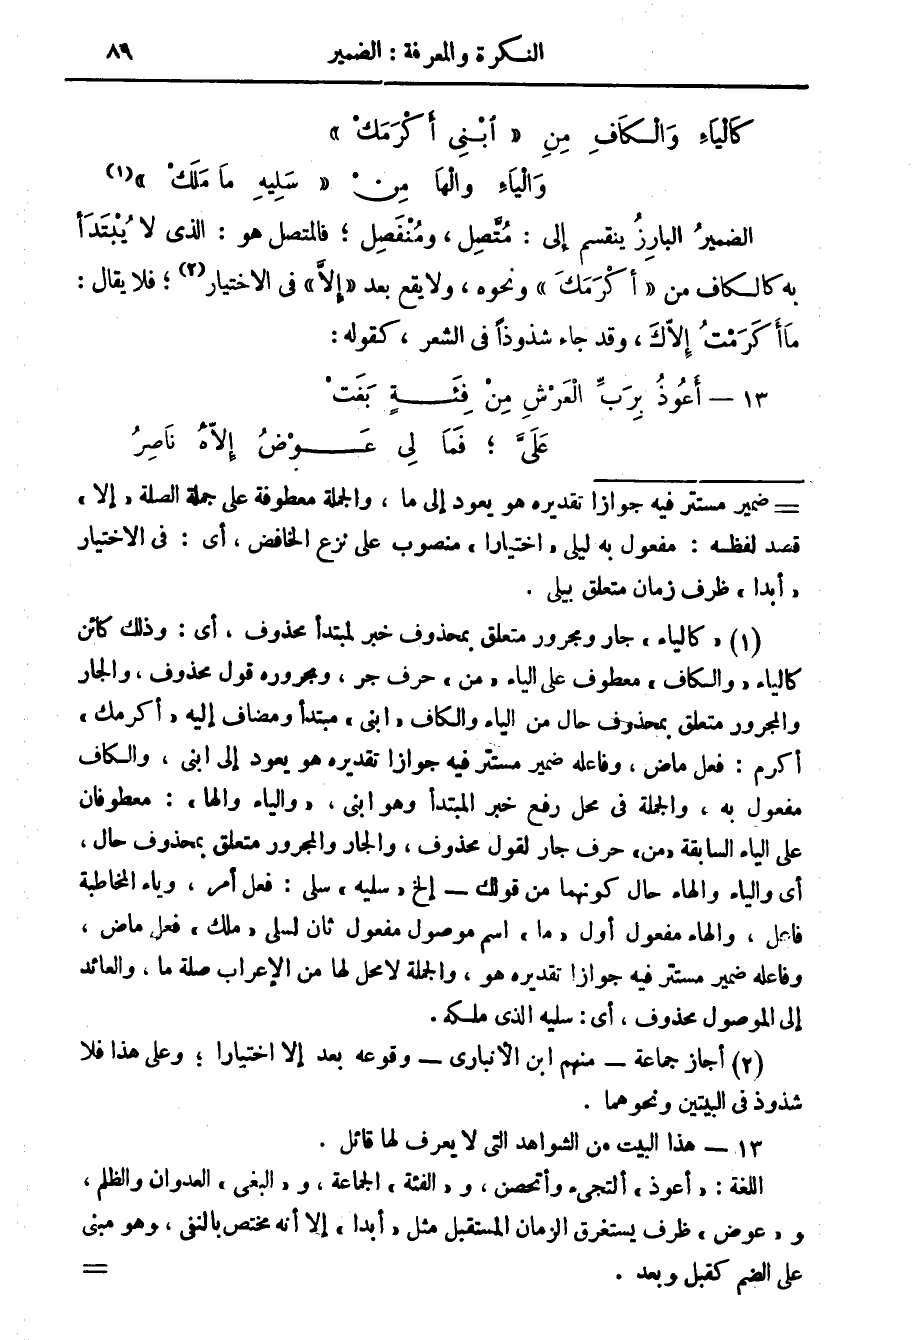 النكرة والمعرفة : الضمير ٨٩
كَالْيَاءِ وَالْكَافِ مِنِ « ابْنِي أَكْرَمَكْ »
وَالْيَاءِ والْهَا مِنْ « سَلِيهِ مَا مَلَكْ »(١)
الضميرُ البارِزُ ينقسم إلى : مُتَّصِل ، ومُنْفَصِل ؛ فالمتصل هو : الذى لا يُبْتَدَأ
به كالكاف من « أكْرَمَكَ » ونحوه ، ولا يقع بعد «إلاَّ» فى الاختيار(٢) ؛ فلا يقال :
مَاأَكَرَمْتُ إلاّكَ ، وقد جاء شذوذاً فى الشعر ، كقوله :
١٣ — أَعُوذُ بِرَبِّ الْعَرْشِ مِنْ فِئَةٍ بَغَتْ
عَلَىَّ ؛ فَمَا لِي عَوْضُ إلاّهُ نَاصِرُ
= ضمير مستتر فيه جوازا تقديره هو يعود إلى ما ، والجملة معطوفة على جملة الصلة « إلا »
قصد لفظه : مفعول به ليلى « اختيارا » منصوب على نزع الخافض ، أى : فى الاختيار
« أبدا » ظرف زمان متعلق بيلى .
(١) « كالياء » جار ومجرور متعلق بمحذوف خبر لمبتدأ محذوف ، أى : وذلك كائن
كالياء « والكاف » معطوف على الياء « من » حرف جر ، ومجروره قول محذوف ، والجار
والمجرور متعلق بمحذوف حال من الياء والكاف « ابنى » مبتدأ ومضاف إليه « أكرمك »
أكرم : فعل ماض ، وفاعله ضمير مستتر فيه جوازا تقديره هو يعود إلى ابنى ، والكاف
مفعول به ، والجملة فى محل رفع خبر المبتدأ وهو ابنى ، « والياء والها » : معطوفان
على الياء السابقة « من » حرف جار لقول محذوف ، والجار والمجرور متعلق بمحذوف حال ،
أى والياء والهاء حال كونهما من قولك — إلخ « سليه » سلى : فعل أمر ، وياء المخاطبة
فاعل ، والهاء مفعول أول « ما » اسم موصول مفعول ثان لسلى « ملك » فعل ماض ،
وفاعله ضمير مستتر فيه جوازا تقديره هو ، والجملة لامحل لها من الإعراب صلة ما ، والعائد
إلى الموصول محذوف ، أى : سليه الذى ملكه .
(٢) أجاز جماعة — منهم ابن الأنبارى — وقوعه بعد إلا اختيارا ؛ وعلى هذا فلا
شذوذ فى البيتين ونحوهما .
١٣ — هذا البيت من الشواهد التى لا يعرف لها قائل .
اللغة : « أعوذ » ألتجىء وأتحصن ، و « الفئة » الجماعة ، و « البغى » العدوان والظلم ،
و « عوض » ظرف يستغرق الزمان المستقبل مثل « أبدا » إلا أنه مختص بالنفى ، وهو مبنى
على الضم كقبل وبعد . =